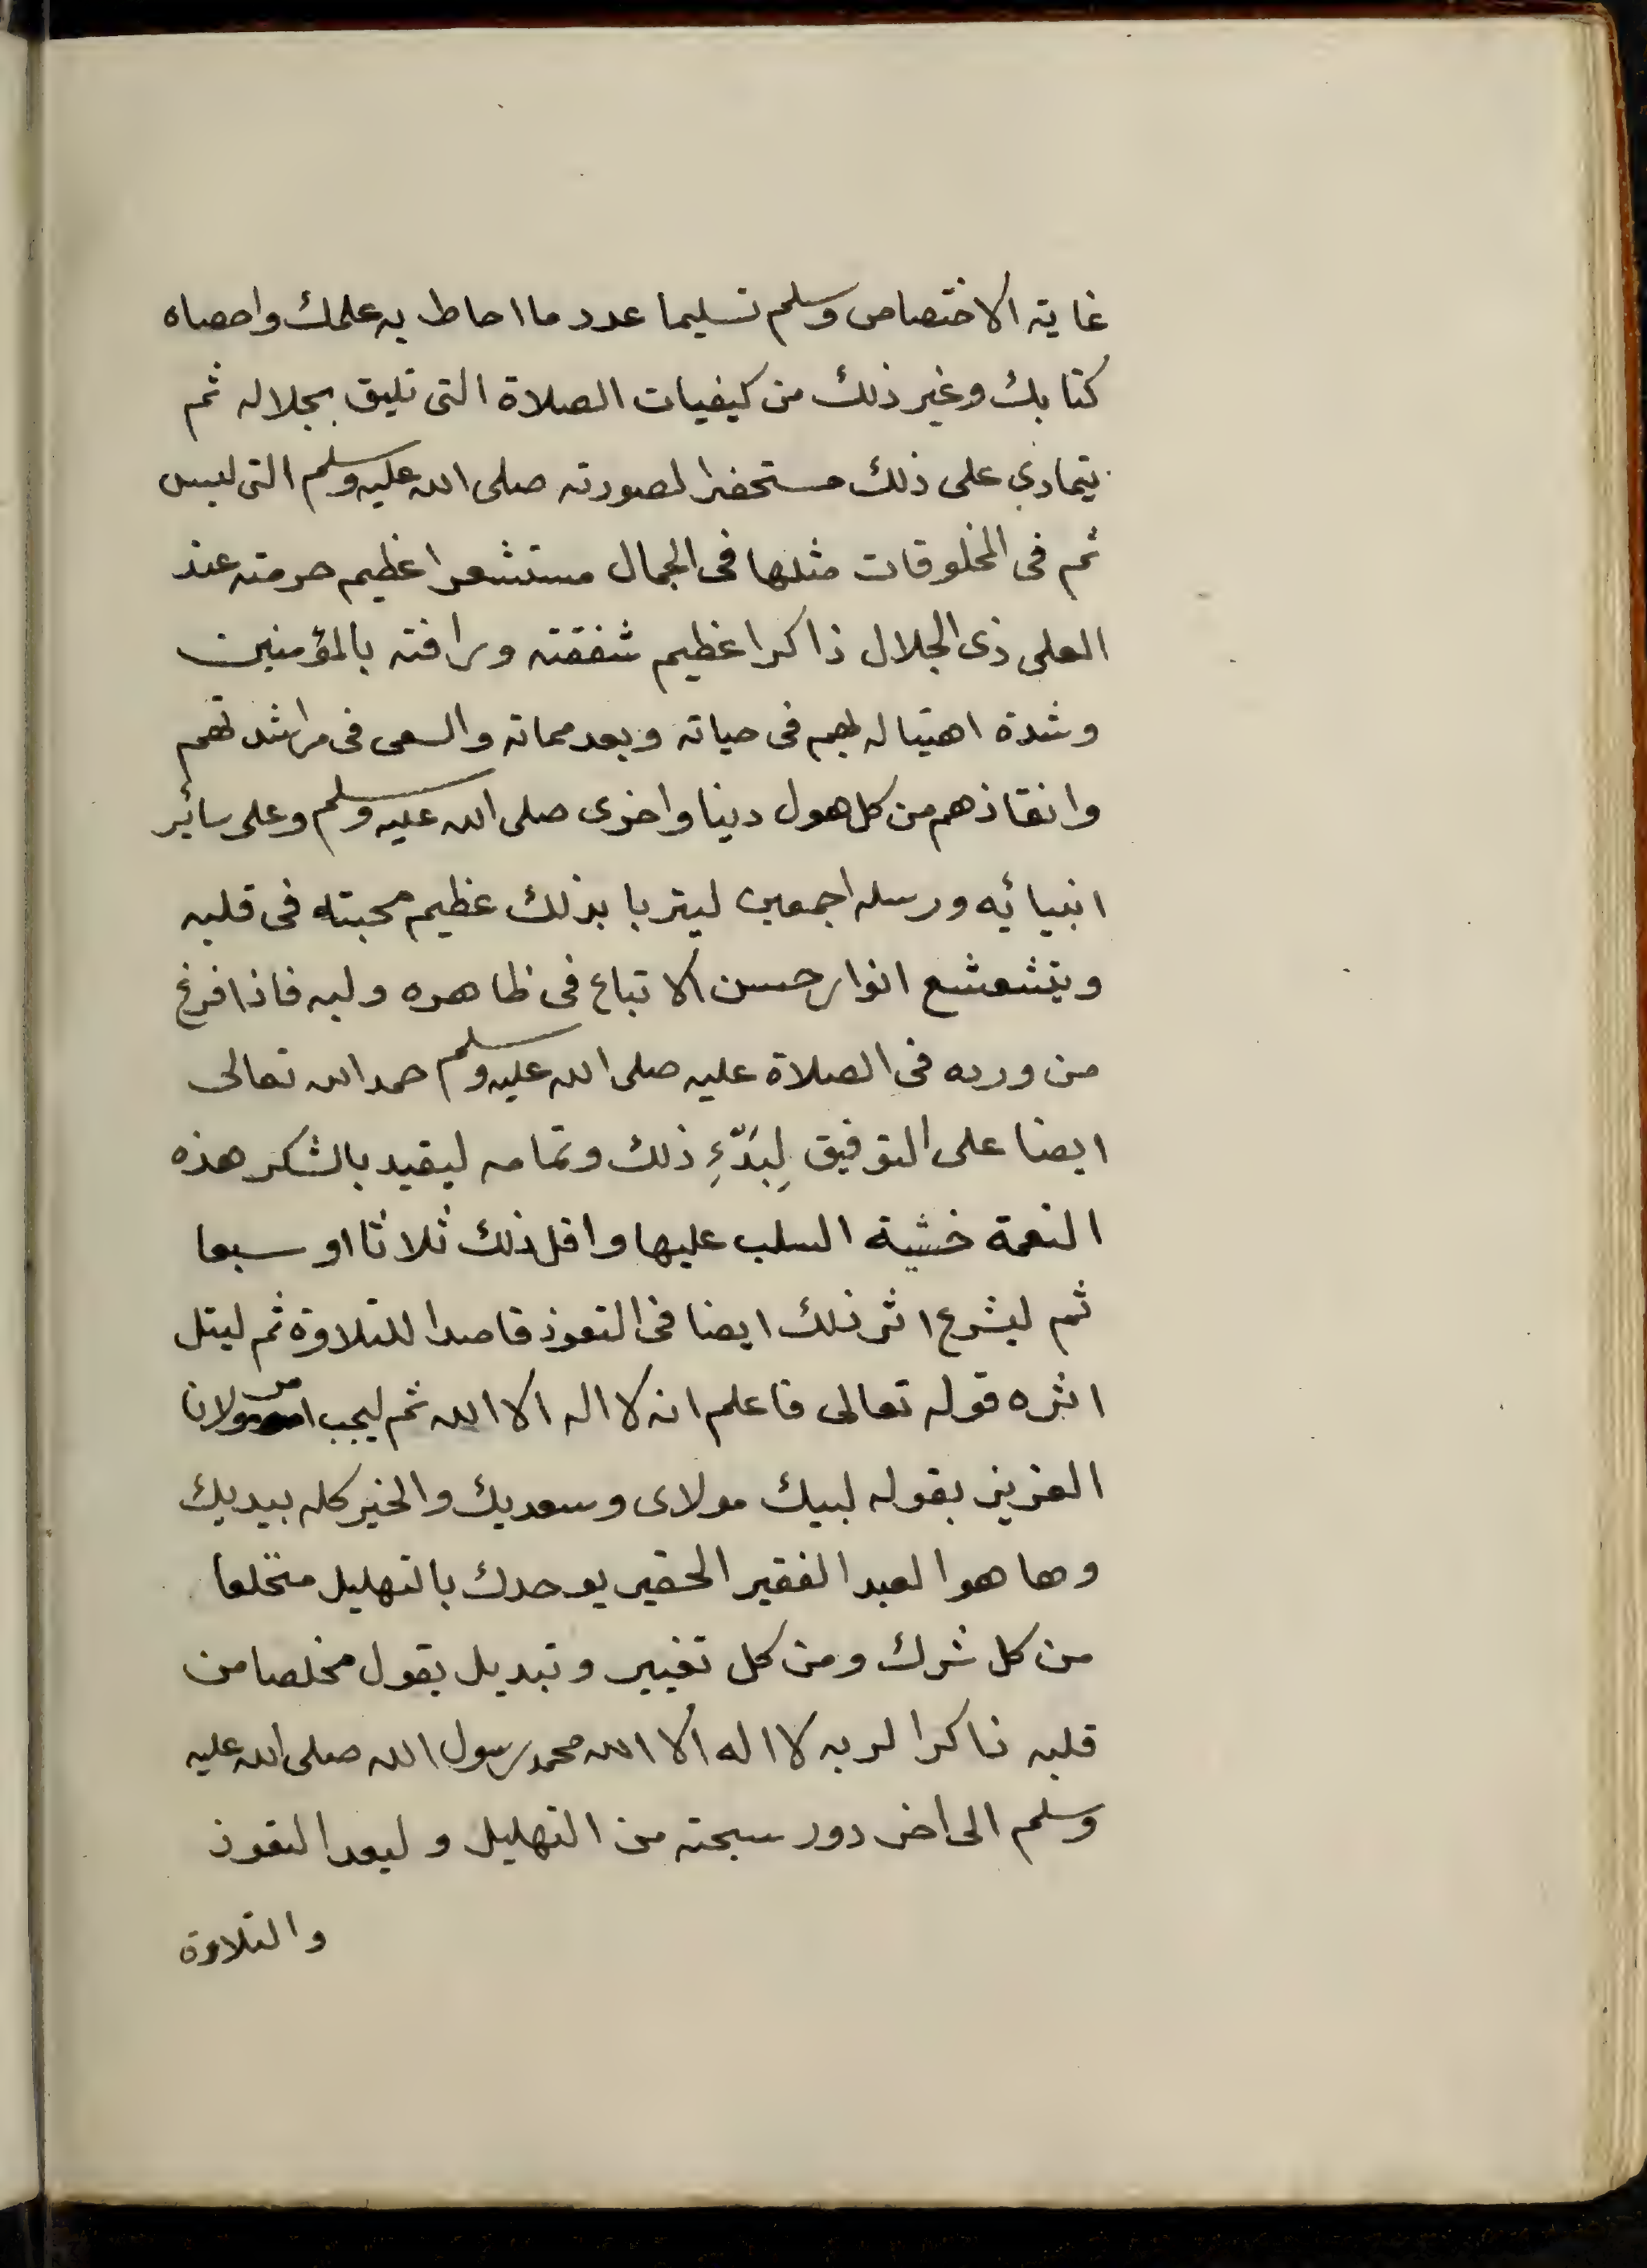 غاية الاختصاص وسلم تسليما عدد ما احاط به علمك واحصاه
كتابك وغير ذلك من كيفيات الصلاة التى تليق بجلاله ثم
يتمادى على ذلك مستحضرا لصورته صلى الله عليه وسلم التى ليس
ثم فى المخلوقات مثلها فى الجمال مستشعرا عظيم حرمته عند
العلى ذى الجلال ذاكرا عظيم شفقته ورافته بالمؤمنين
وشدة اهتباله بهم فى حياته وبعد مماته والسعى فى مراشدهم
وانقاذهم من كل هول دينا واخرى صلى الله عليه وسلم وعلى سائر
انبيائه ورسله اجمعين ليتربا بذلك عظيم محبته فى قلبه
ويتشعشع انوار حسن الاتباع فى ظاهره ولبه فاذا فرغ
من ورده فى الصلاة عليه صلى الله عليه وسلم حمد الله تعالى
ايضا على التوفيق لِبَدّءِ ذلك وتمامه ليقيد بالشكر هذه
النعمة خشية السلب عليها واقل ذلك ثلاثا او سبعا
ثم ليشرع اثر ذلك ايضا فى التعوذ قاصدا للتلاوة ثم ليتل
اثره قوله تعالى فاعلم انه لا اله الا الله ثم ليجب امر مولانا
العزيز بقوله لبيك مولاى وسعديك والخير كله بيديك
وها هو العبد الفقير الحقير يوحدك بالتهليل متخلعا
من كل شرك ومن كل تغيير وتبديل يقول مخلصا من
قلبه ذاكرا لربه لا اله الا الله محمد رسول الله صلى الله عليه
وسلم الى اخر دور سبحته من التهليل وليعد التعوذ
والتلاوة